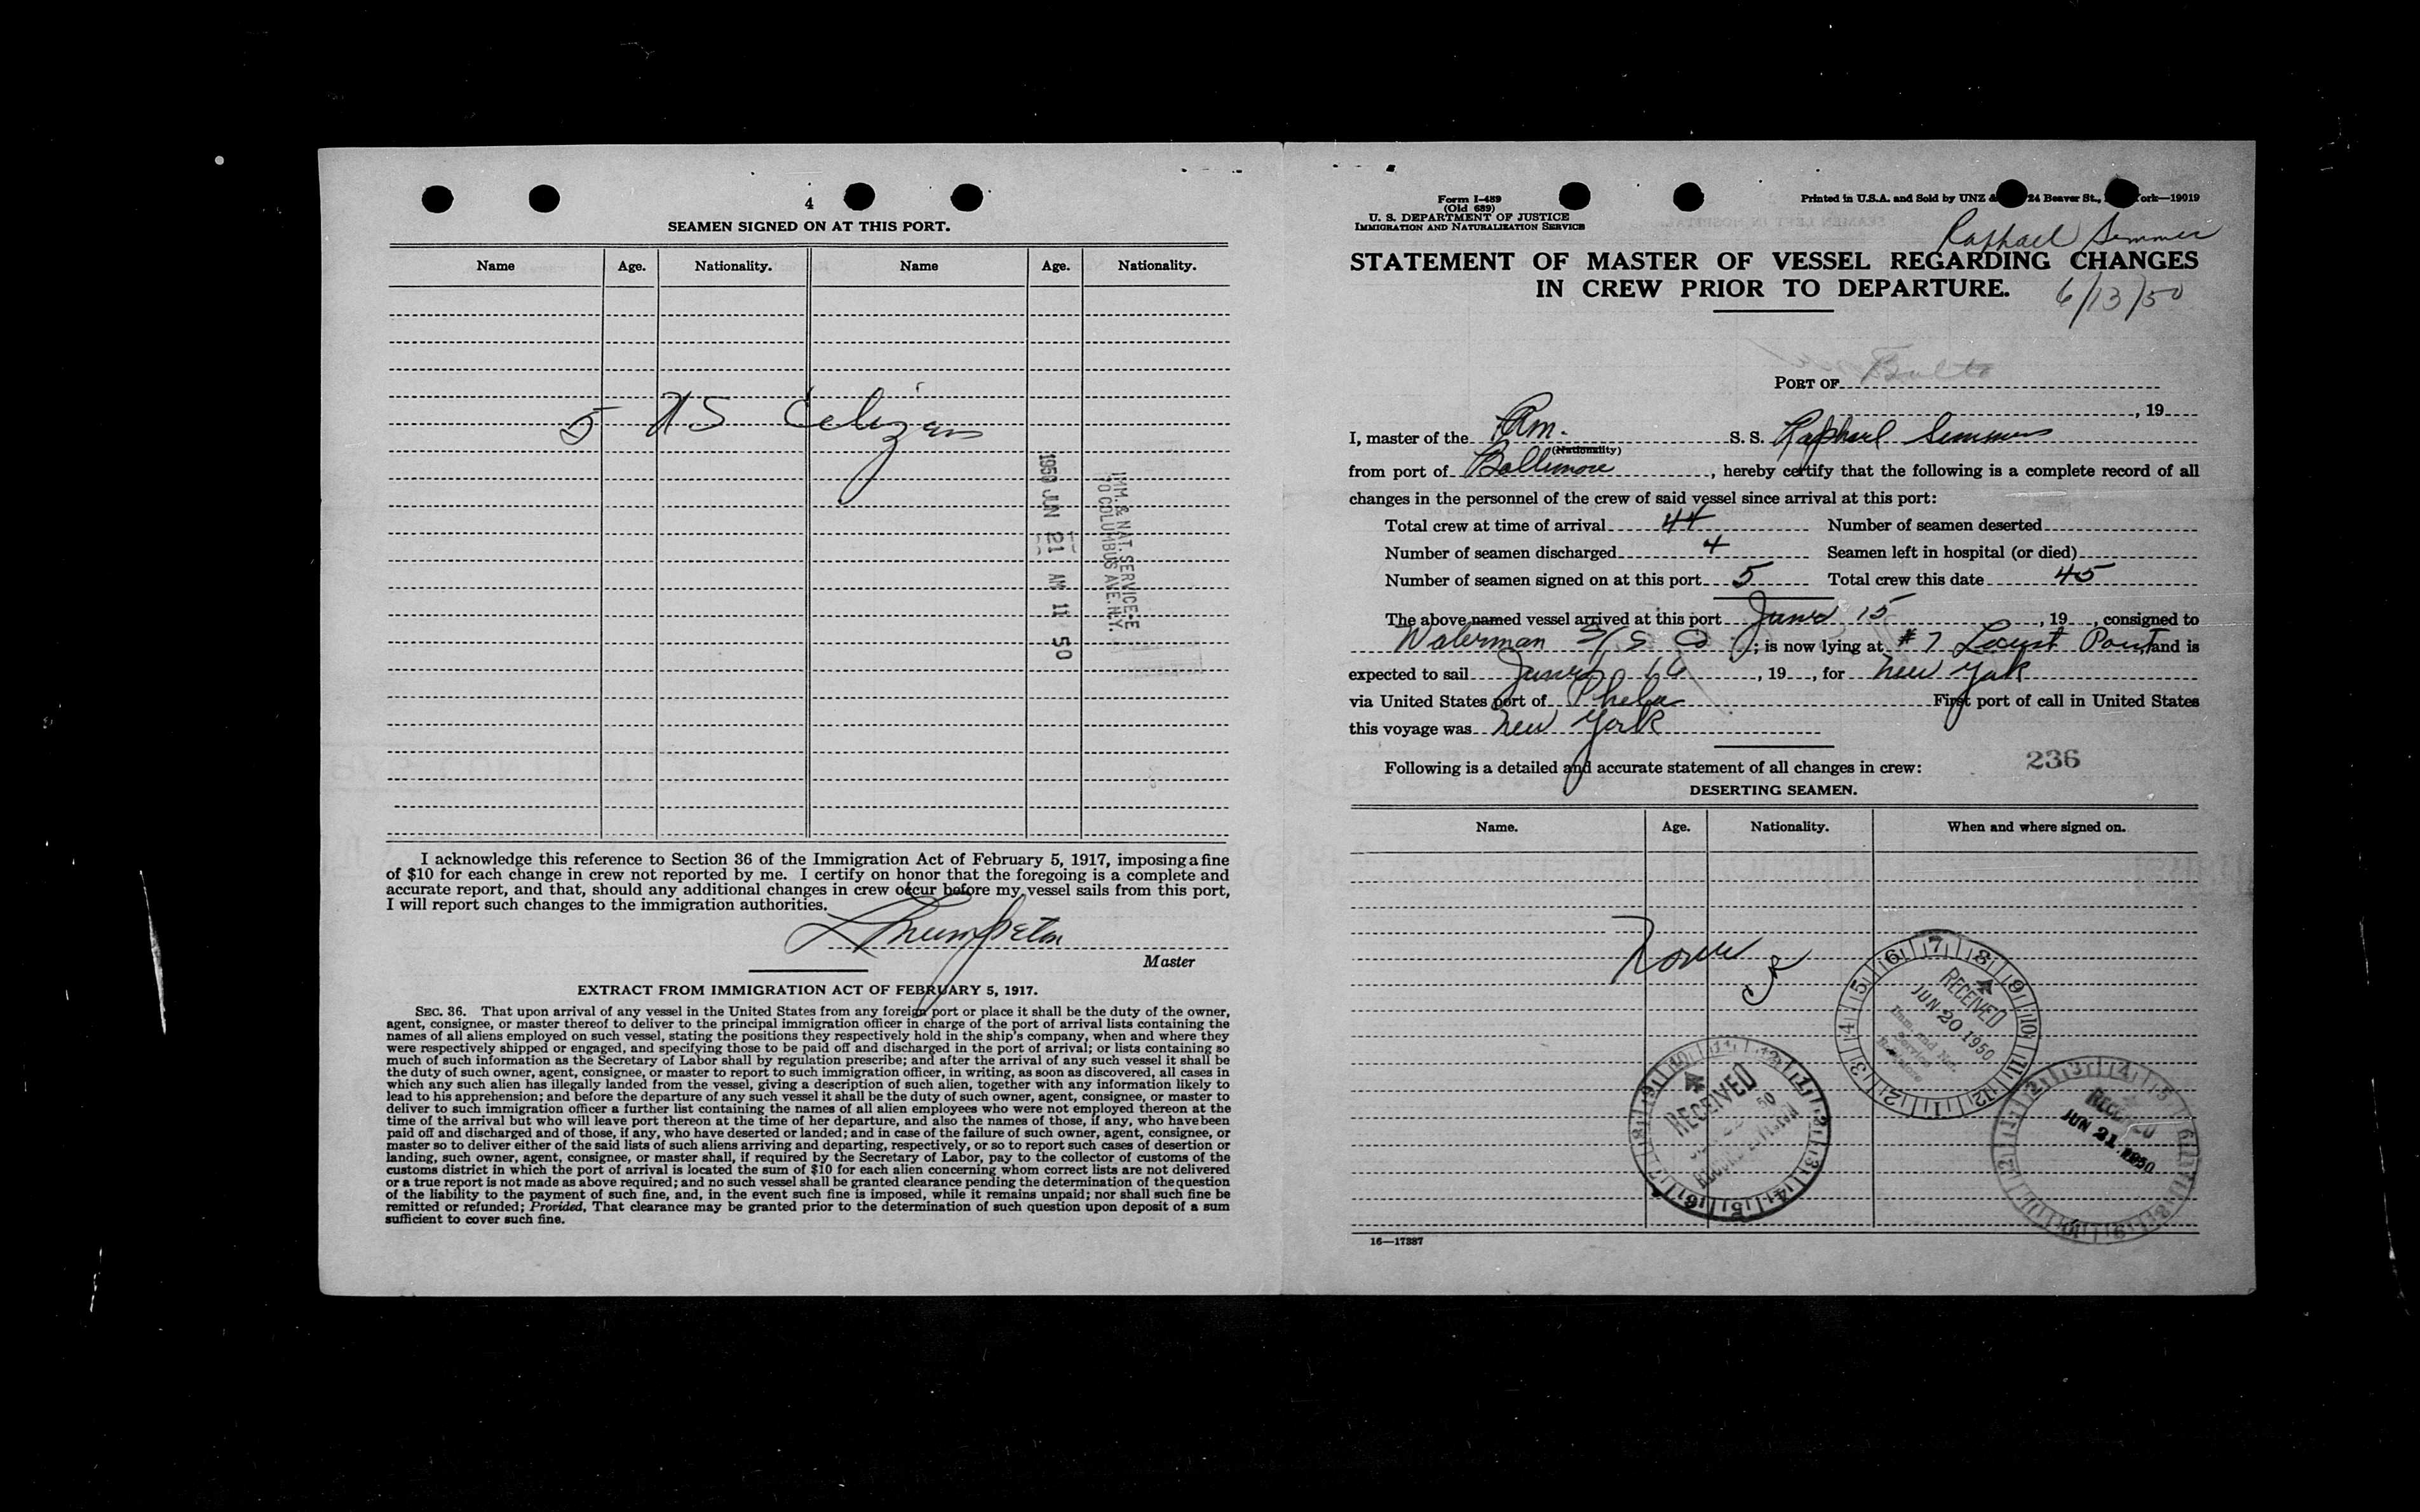 4
SEAMEN SIGNED ON AT THIS PORT.
Name Age. Nationality. Name Age. Nationality.
5 US Citizens
1950 JUN 21 AM 11 50
IMM. & NAT. SERVICE-E
70 COLUMBUS AVE. N.Y.
I acknowledge this reference to Section 36 of the Immigration Act of February 5, 1917, imposing a fine
of $10 for each change in crew not reported by me. I certify on honor that the foregoing is a complete and
accurate report, and that, should any additional changes in crew occur before my vessel sails from this port,
I will report such changes to the immigration authorities.
Master
EXTRACT FROM IMMIGRATION ACT OF FEBRUARY 5, 1917.
SEC. 36. That upon arrival of any vessel in the United States from any foreign port or place it shall be the duty of the owner,
agent, consignee, or master thereof to deliver to the principal immigration officer in charge of the port of arrival lists containing the
names of all aliens employed on such vessel, stating the positions they respectively hold in the ship's company, when and where they
were respectively shipped or engaged, and specifying those to be paid off and discharged in the port of arrival; or lists containing so
much of such information as the Secretary of Labor shall by regulation prescribe; and after the arrival of any such vessel it shall be
the duty of such owner, agent, consignee, or master to report to such immigration officer, in writing, as soon as discovered, all cases in
which any such alien has illegally landed from the vessel, giving a description of such alien, together with any information likely to
lead to his apprehension; and before the departure of any such vessel it shall be the duty of such owner, agent, consignee, or master to
deliver to such immigration officer a further list containing the names of all alien employees who were not employed thereon at the
time of the arrival but who will leave port thereon at the time of her departure, and also the names of those, if any, who have been
paid off and discharged and of those, if any, who have deserted or landed; and in case of the failure of such owner, agent, consignee, or
master so to deliver either of the said lists of such aliens arriving and departing, respectively, or so to report such cases of desertion or
landing, such owner, agent, consignee, or master shall, if required by the Secretary of Labor, pay to the collector of customs of the
customs district in which the port of arrival is located the sum of $10 for each alien concerning whom correct lists are not delivered
or a true report is not made as above required; and no such vessel shall be granted clearance pending the determination of the question
of the liability to the payment of such fine, and, in the event such fine is imposed, while it remains unpaid; nor shall such fine be
remitted or refunded; Provided, That clearance may be granted prior to the determination of such question upon deposit of a sum
sufficient to cover such fine.
Form I-489
(Old 689)
U. S. DEPARTMENT OF JUSTICE
IMMIGRATION AND NATURALIZATION SERVICE
Printed in U.S.A. and Sold by UNZ & 24 Beaver St., ork—19019
Raphael Semmes
STATEMENT OF MASTER OF VESSEL REGARDING CHANGES
IN CREW PRIOR TO DEPARTURE.
6/13/50
PORT OF Balto
, 19
I, master of the Am. S. S. Raphael Semmes
(Nationality)
from port of Baltimore, hereby certify that the following is a complete record of all
changes in the personnel of the crew of said vessel since arrival at this port:
Total crew at time of arrival 44 Number of seamen deserted
Number of seamen discharged 4 Seamen left in hospital (or died)
Number of seamen signed on at this port 5 Total crew this date 45
The above named vessel arrived at this port June 15, 19, consigned to
Waterman S/S Co; is now lying at #7 Locust Point, and is
expected to sail June 16, 19, for New York
via United States port of Phela First port of call in United States
this voyage was New York
Following is a detailed and accurate statement of all changes in crew:
236
DESERTING SEAMEN.
Name. Age. Nationality. When and where signed on.
None
RECEIVED
JUN 20 1950
Imm. and Nat.
Service
Baltimore
RECEIVED
RECEIVED
JUN 21 1950
16—17387